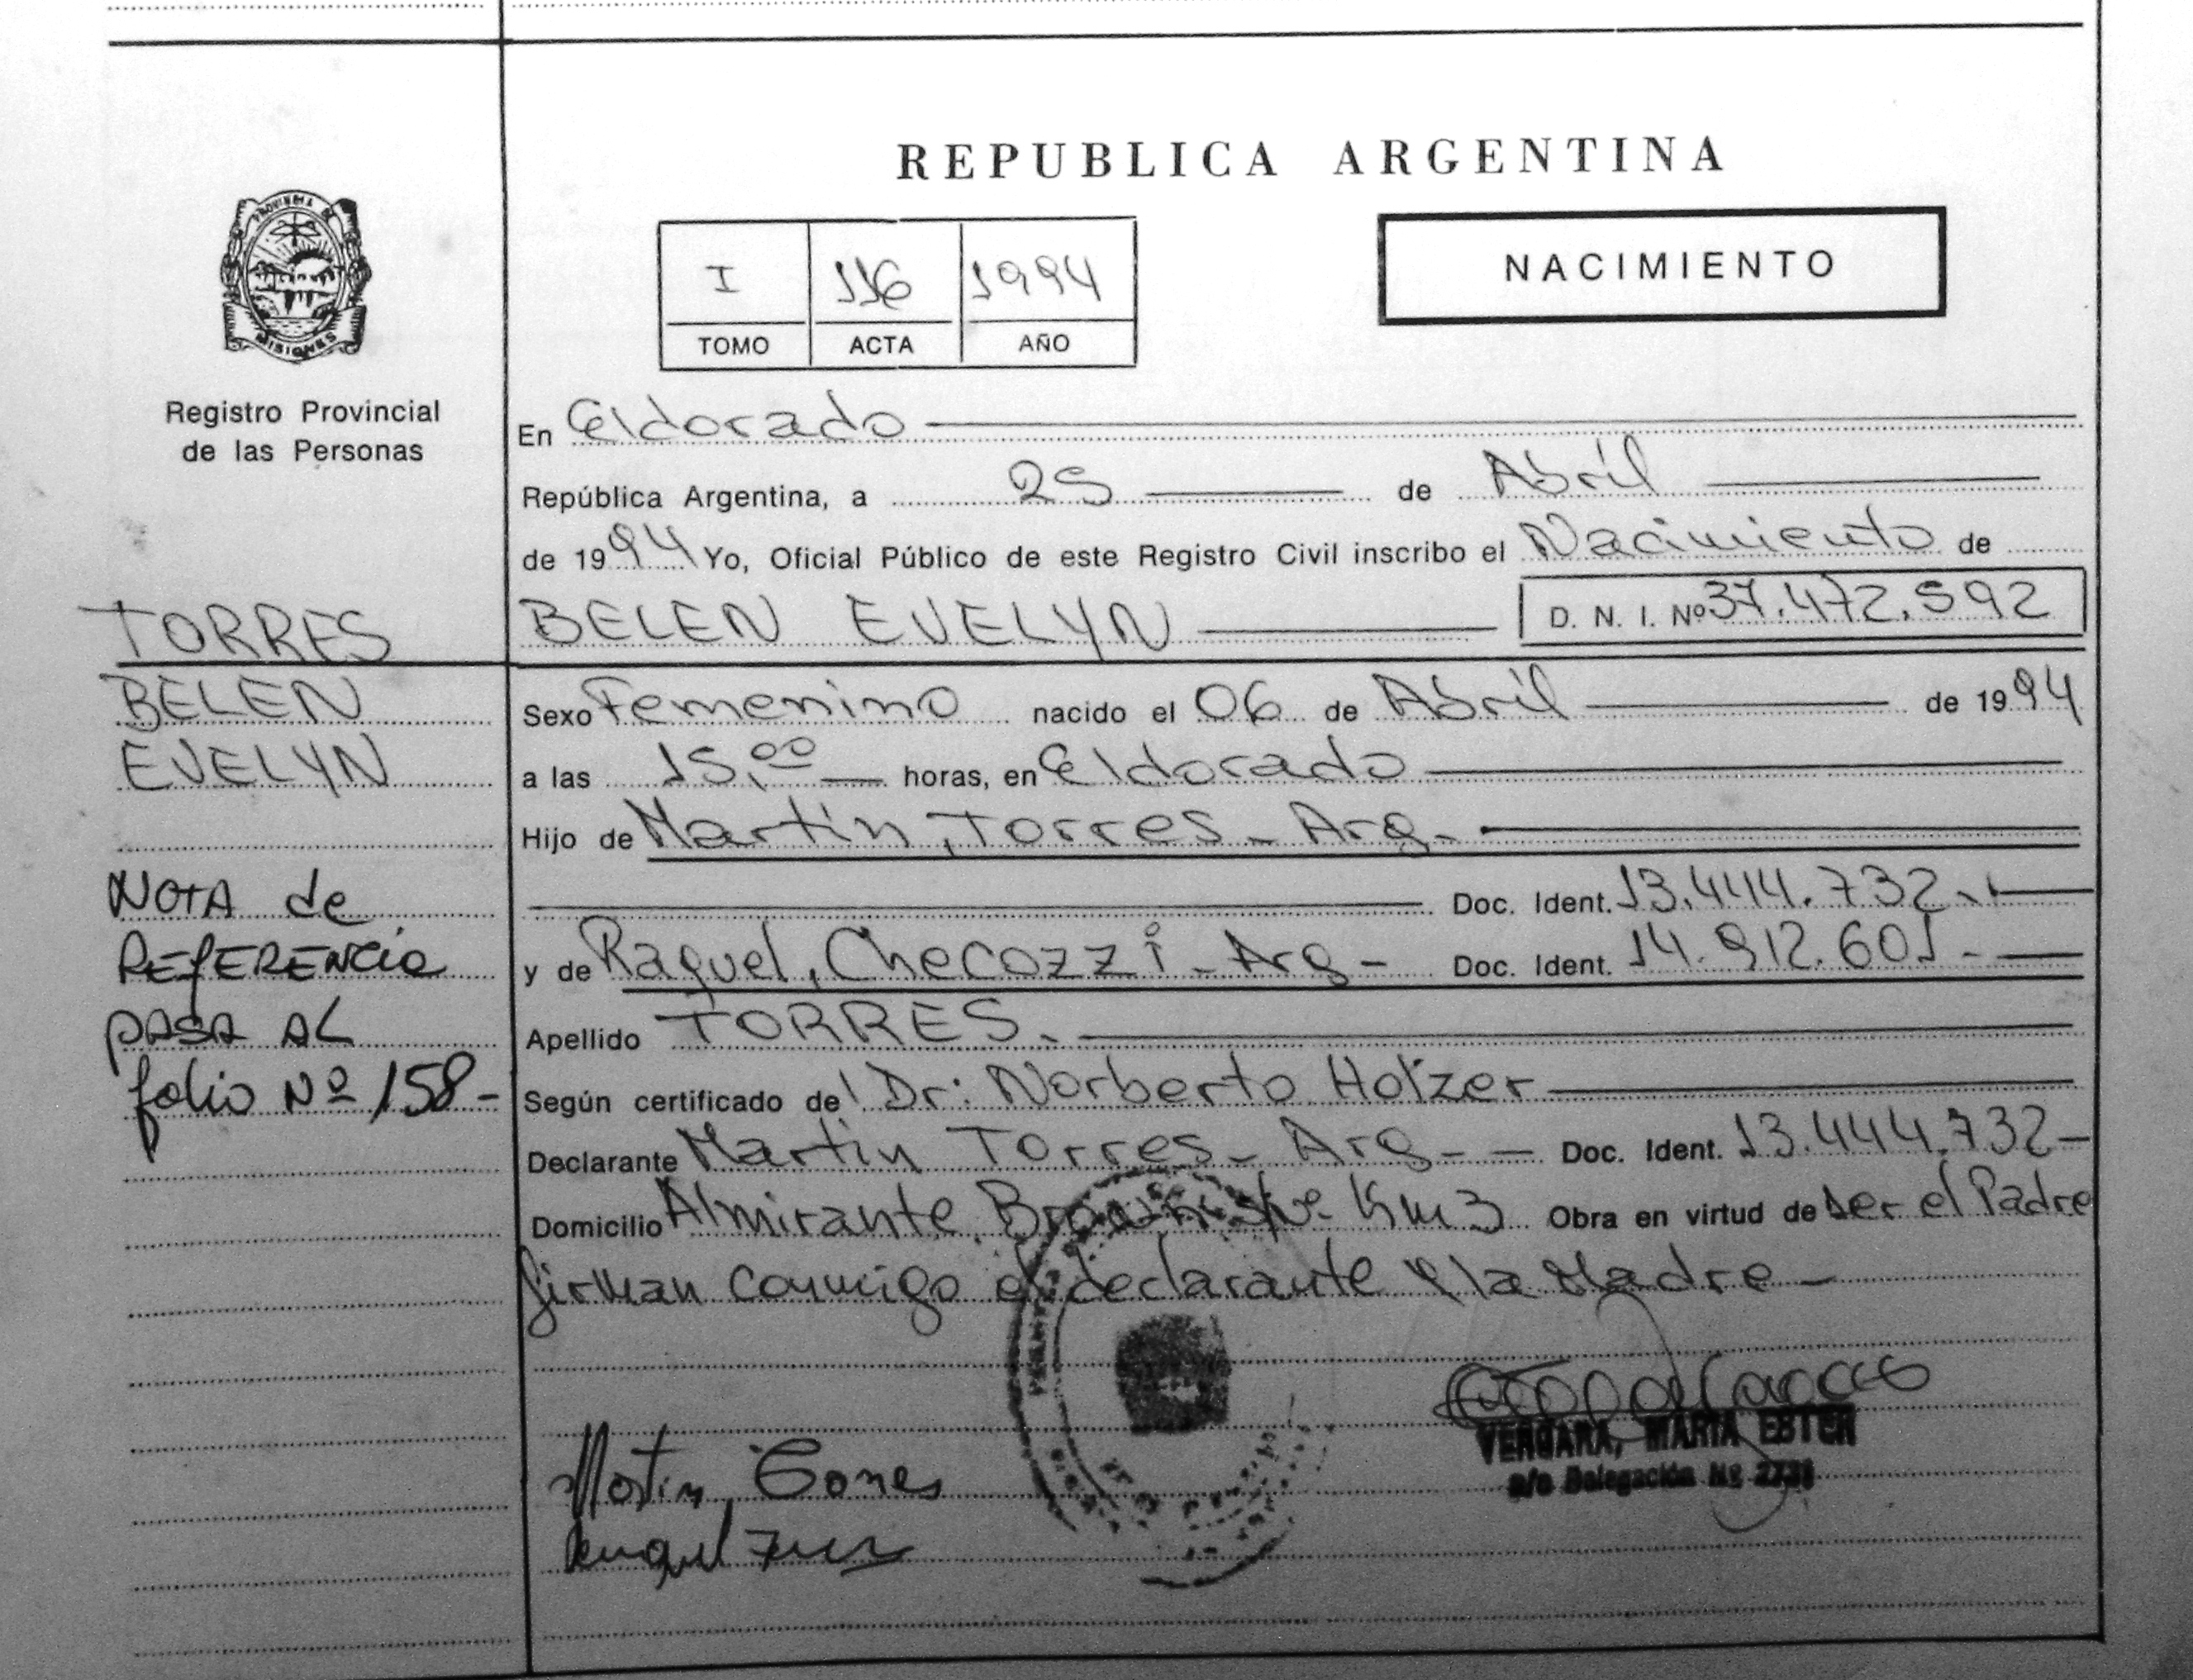 REPUBLICA ARGENTINA
PROVINCIA DE
MISIONES
Registro Provincial
de las Personas
I 116 1994
TOMO ACTA AÑO
NACIMIENTO
En Eldorado
República Argentina, a 25 de Abril
de 1994 Yo, Oficial Público de este Registro Civil inscribo el Nacimiento de
BELEN EVELYN D. N. I. Nº 37.472.592
Sexo Femenino nacido el 06 de Abril de 1994
a las 15,00 horas, en Eldorado
Hijo de Martin, Torres - Arg.
Doc. Ident. 13.444.732.
y de Raquel, Checozzi - Arg - Doc. Ident. 14.912.601.-
Apellido TORRES.
Según certificado del Dr: Norberto Holzer
Declarante Martin Torres - Arg - Doc. Ident. 13.444.732
Domicilio Almirante Brown Km 3 Obra en virtud de ser el Padre
firman conmigo el declarante y la Madre -
TORRES
BELEN
EVELYN
NOTA de
REfERENCia
pASA AL
folio Nº 158-
Martin Torres
VERGARA, MARIA ESTER
Delegación